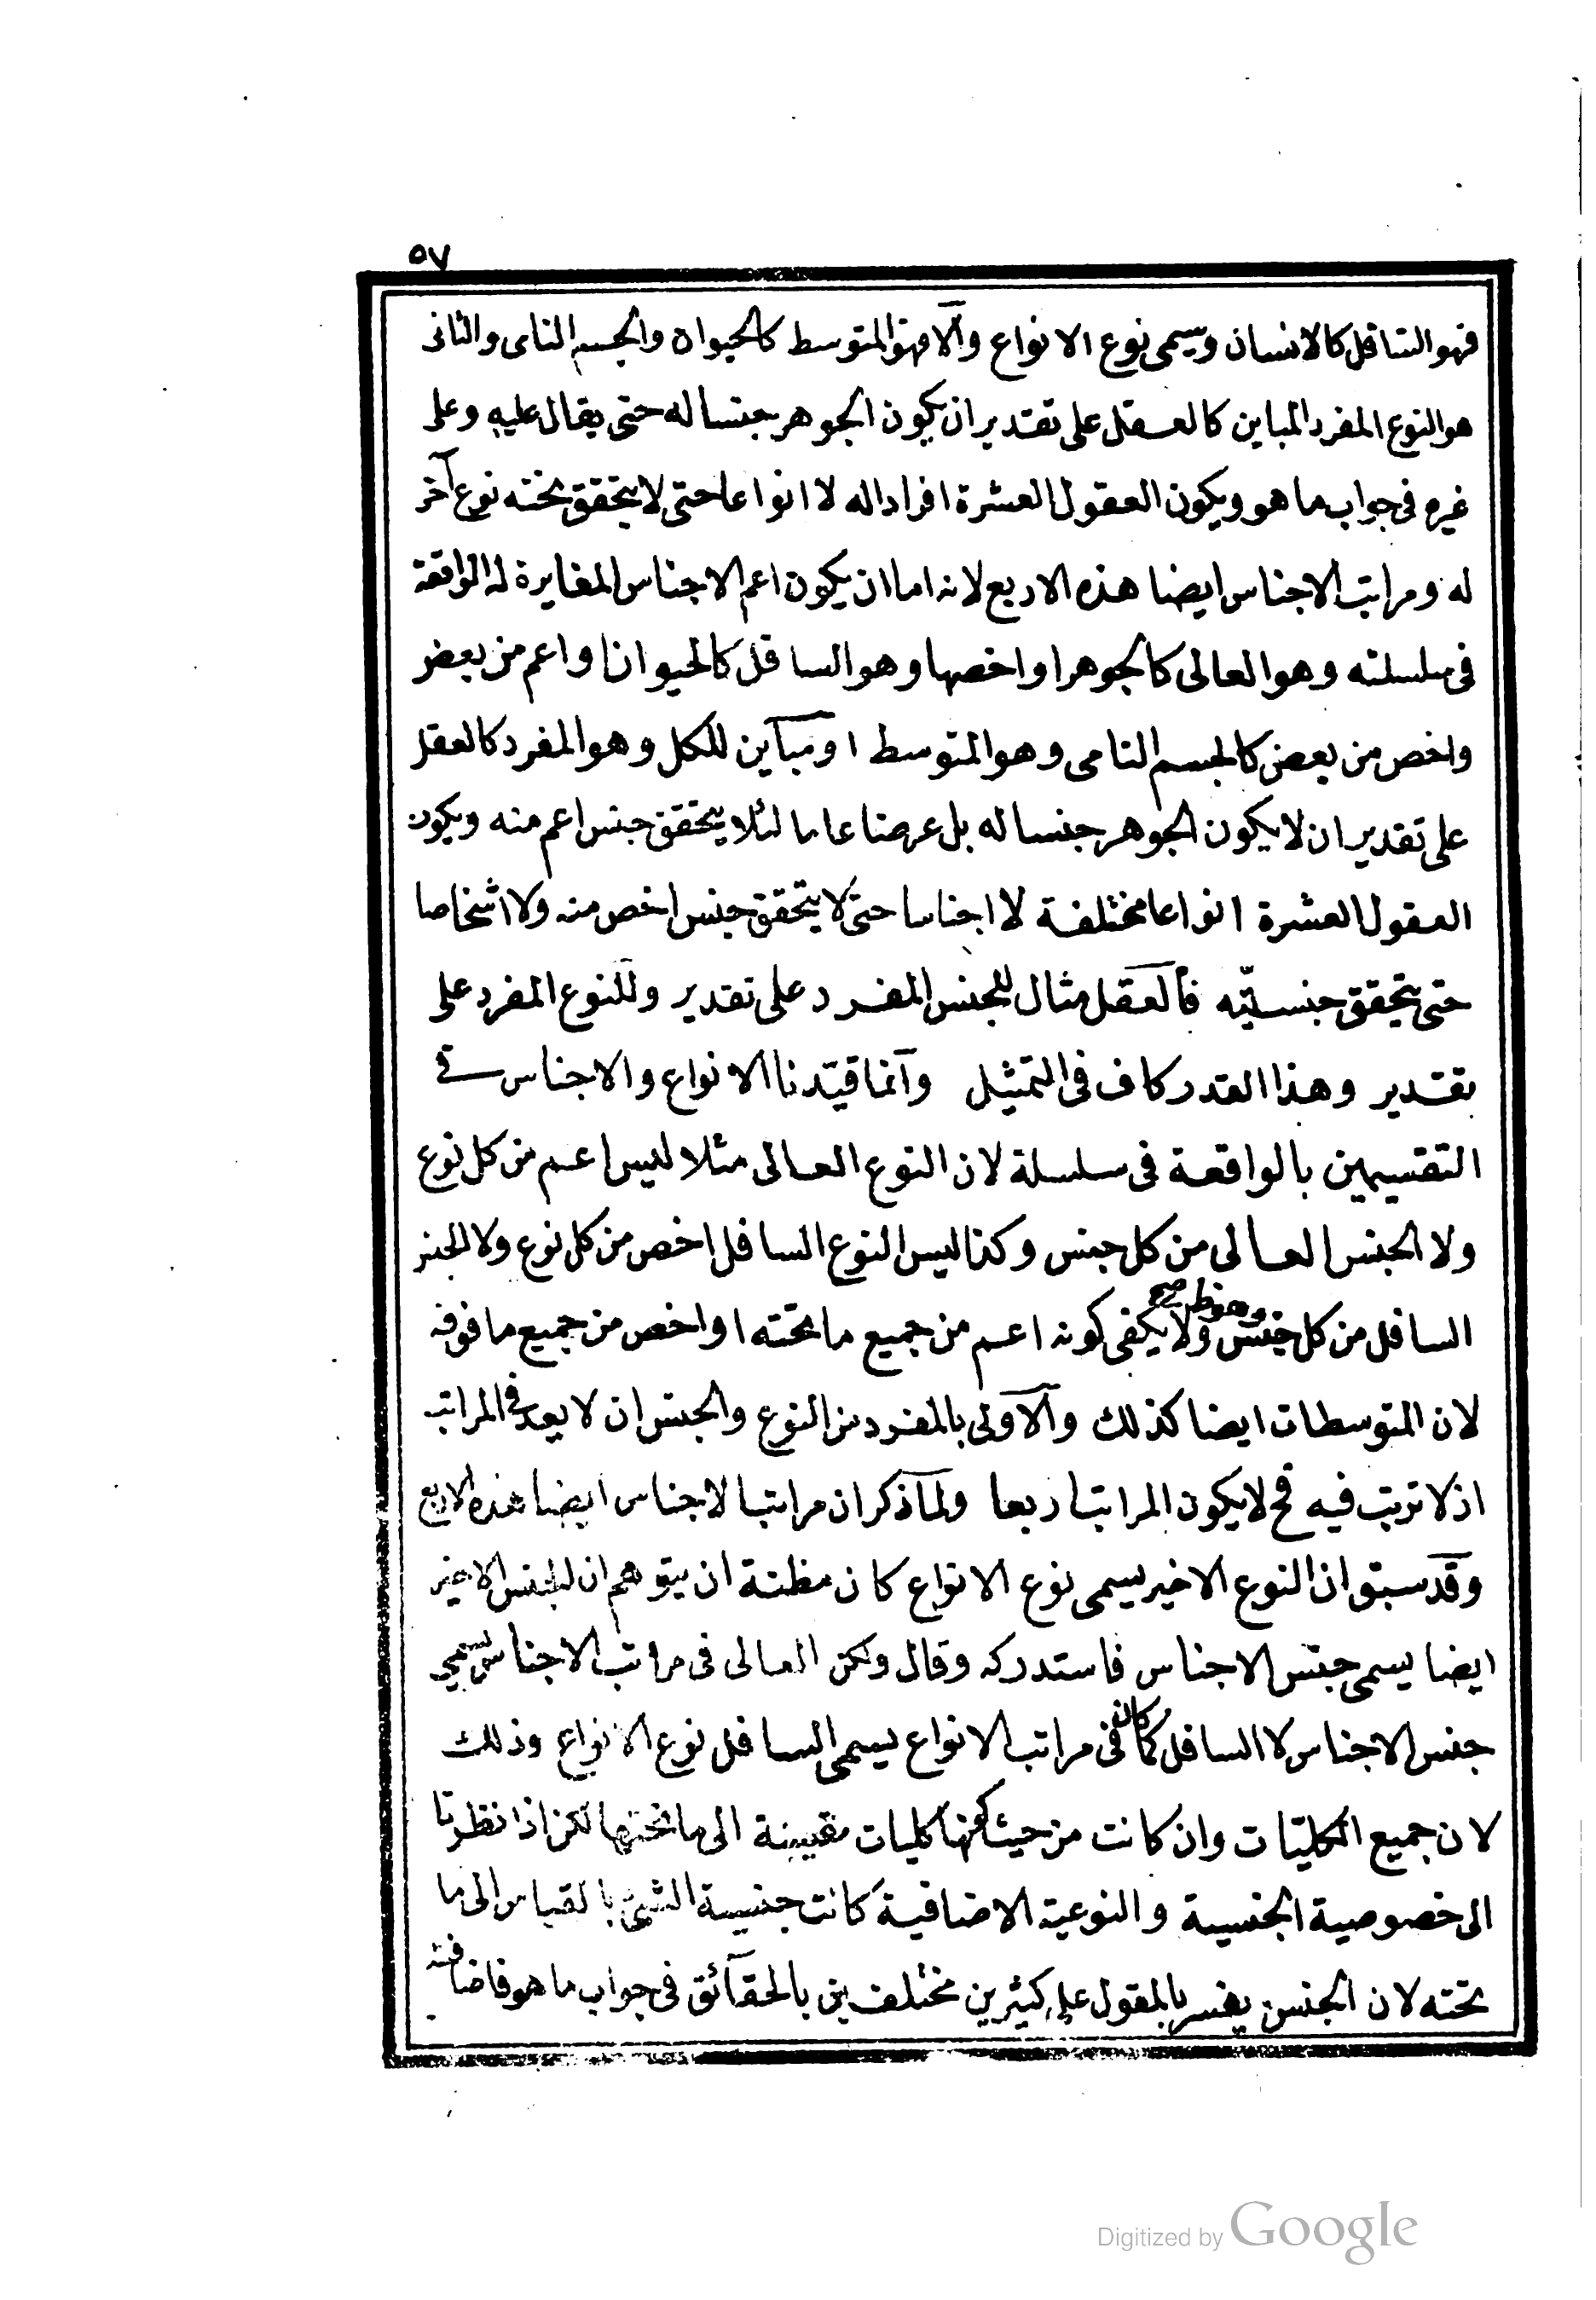 ٥٧
فهو السافل كالانسان ويسمى نوع الانواع والا فهو المتوسط كالحيوان والجسم النامى والثانى
هو النوع المفرد المباين كالعقل على تقدير ان يكون الجوهر جنسا له حتى يقال عليه وعلى
غيره فى جواب ما هو ويكون العقول العشرة افرادا له لا انواعا حتى لا يتحقق تحته نوع آخر
له ومراتب الاجناس ايضا هذه الاربع لانه اما ان يكون اعم الاجناس المغايرة له الواقعة
فى سلسلته وهو العالى كالجوهر او اخصها وهو السافل كالحيوان او اعم من بعض
واخص من بعض كالجسم النامى وهو المتوسط او مباين للكل وهو المفرد كالعقل
على تقدير ان لا يكون الجوهر جنسا له بل عرضا عاما لئلا يتحقق جنس اعم منه ويكون
العقول العشرة انواعا مختلفة لا اجناسا حتى لا يتحقق جنس اخص منه ولا اشخاصا
حتى يتحقق جنسيّته فالعقل مثال للجنس المفرد على تقدير وللنوع المفرد على
تقدير وهذا القدر كاف فى التمثيل وانما قيّدنا الانواع والاجناس فى
التقسيمين بالواقعة فى سلسلة لان النوع العالى مثلا ليس اعم من كل نوع
ولا الجنس العالى من كل جنس وكذا ليس النوع السافل اخص من كل نوع ولا الجنس
وهو ظ صح
السافل من كل جنس ولا يكفى كونه اعم من جميع ما تحته او اخص من جميع ما فوقه
لان المتوسطات ايضا كذلك والاولى بالمفرد من النوع والجنس ان لا يعد فى المراتب
اذ لا ترتب فيه فح لا يكون المراتب اربعا ولما ذكر ان مراتب الاجناس ايضا هذه الاربع
وقد سبق ان النوع الاخير يسمى نوع الانواع كان مظنة ان يتوهم ان الجنس الاخير
ايضا يسمى جنس الاجناس فاستدركه وقال ولكن العالى فى مراتب الاجناس يسمى
جنس الاجناس لا السافل كما كان فى مراتب الانواع يسمى السافل نوع الانواع وذلك
لان جميع الكليّات وان كانت من حيث كونها كليات مقيسة الى ما تحتها لكن اذا نظرنا
الى خصوصية الجنسية والنوعية الاضافية كانت جنسية الشئ بالقياس الى ما
تحته لان الجنس يفسر بالمقول على كثيرين مختلفين بالحقائق فى جواب ما هو فاضافته
Digitized by Google